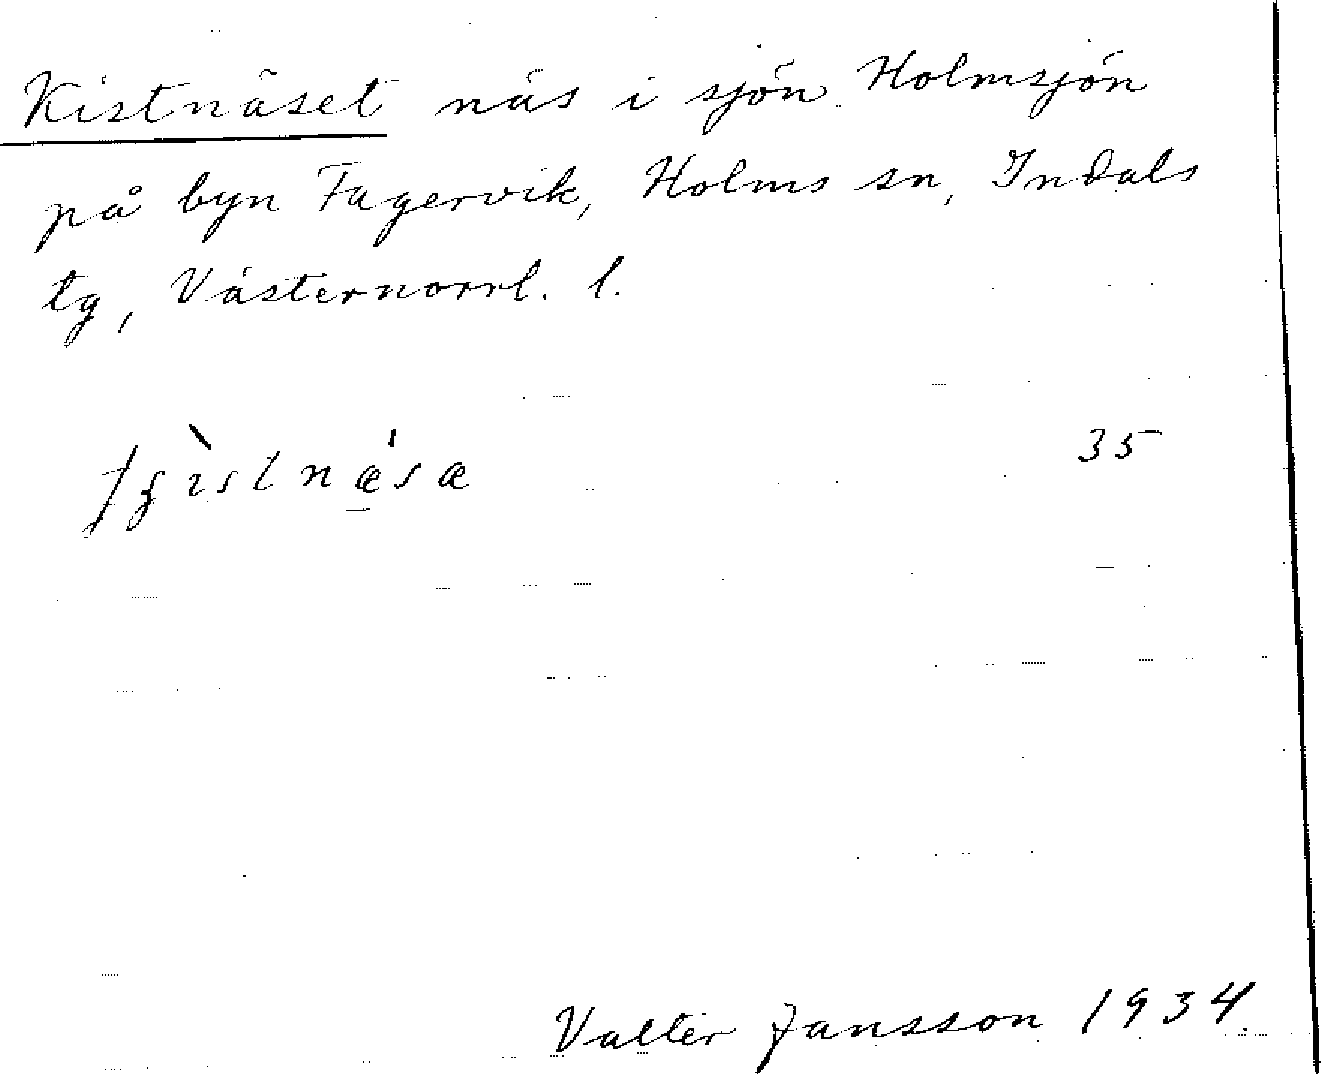 Kistnäset näs i sjön Holmsjön
på byn Fagervik, Holms sn, Indals
tg, Västernorrl. l.
35
Valter Jansson 1934